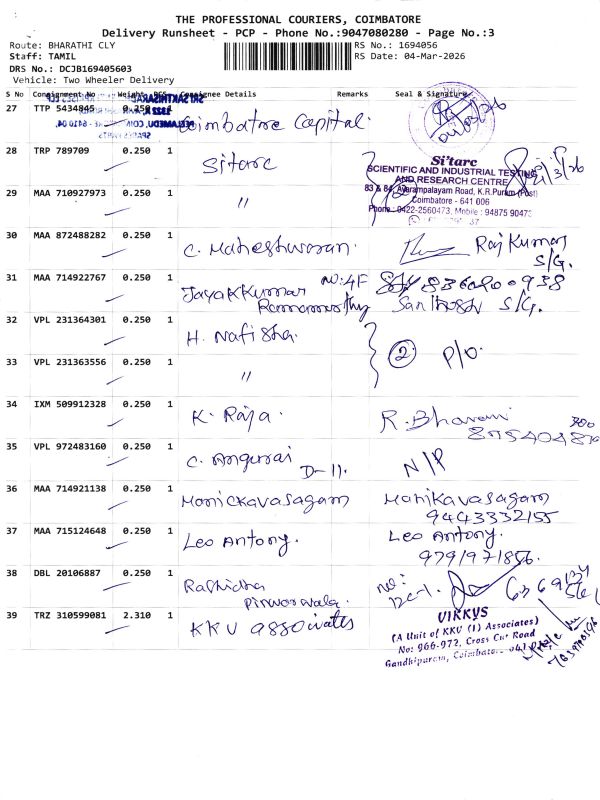 THE PROFESSIONAL COURIERS, COIMBATORE
Delivery Runsheet - PCP - Phone No.:9047080280 - Page No.:3
Route: BHARATHI CLY
RS No.: 1694056
Staff: TAMIL
RS Date: 04-Mar-2026
DRS No.: DCJB169405603
Vehicle: Two Wheeler Delivery
S No Consignment No Weight PCS Consignee Details Remarks Seal & Signature
27 TTP 5434845 0.250 1 Coimbatore Capital.
28 TRP 789709 0.250 1 Sitarc
Si'tarc
SCIENTIFIC AND INDUSTRIAL TESTING
AND RESEARCH CENTRE
83 & 84, Avarampalayam Road, K.R.Puram (Post)
Coimbatore - 641 006
Phone : 0422-2560473, Mobile : 94875 90473
29 MAA 710927973 0.250 1 "
30 MAA 872488282 0.250 1 C. Maheshwaran. Raj Kumar
S/G.
31 MAA 714922767 0.250 1 Jayakkumar NO:4F
Ramamoorthy Santhosh S/G.
32 VPL 231364301 0.250 1 H. Nafisha.
② P/O.
33 VPL 231363556 0.250 1 "
34 IXM 509912328 0.250 1 K. Raja. R. Bharani
35 VPL 972483160 0.250 1 C. Angurai N/P
D-11.
36 MAA 714921138 0.250 1 Manickavasagam Manikavasagam
9443332155
37 MAA 715124648 0.250 1 Leo Antony. Leo Antony.
9791971856.
38 DBL 20106887 0.250 1 Rashidha NO:
12C-1.
39 TRZ 310599081 2.310 1 KKV associates
VIKKYS
(A Unit of KKV (I) Associates)
No: 966-972, Cross Cut Road
Gandhipuram, Coimbatore - 641